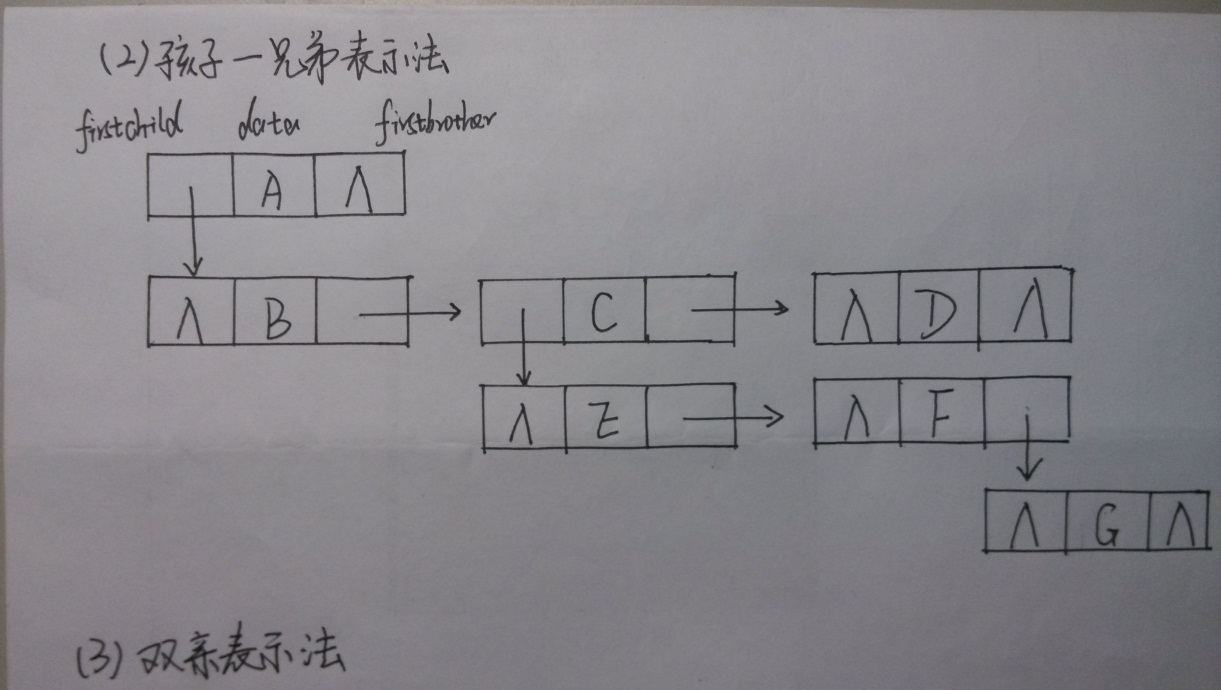 (2)孩子一兄弟表示法
firstchild data firstbrother
A Λ
Λ B C Λ D Λ
Λ E Λ F
Λ G Λ
(3)双亲表示法